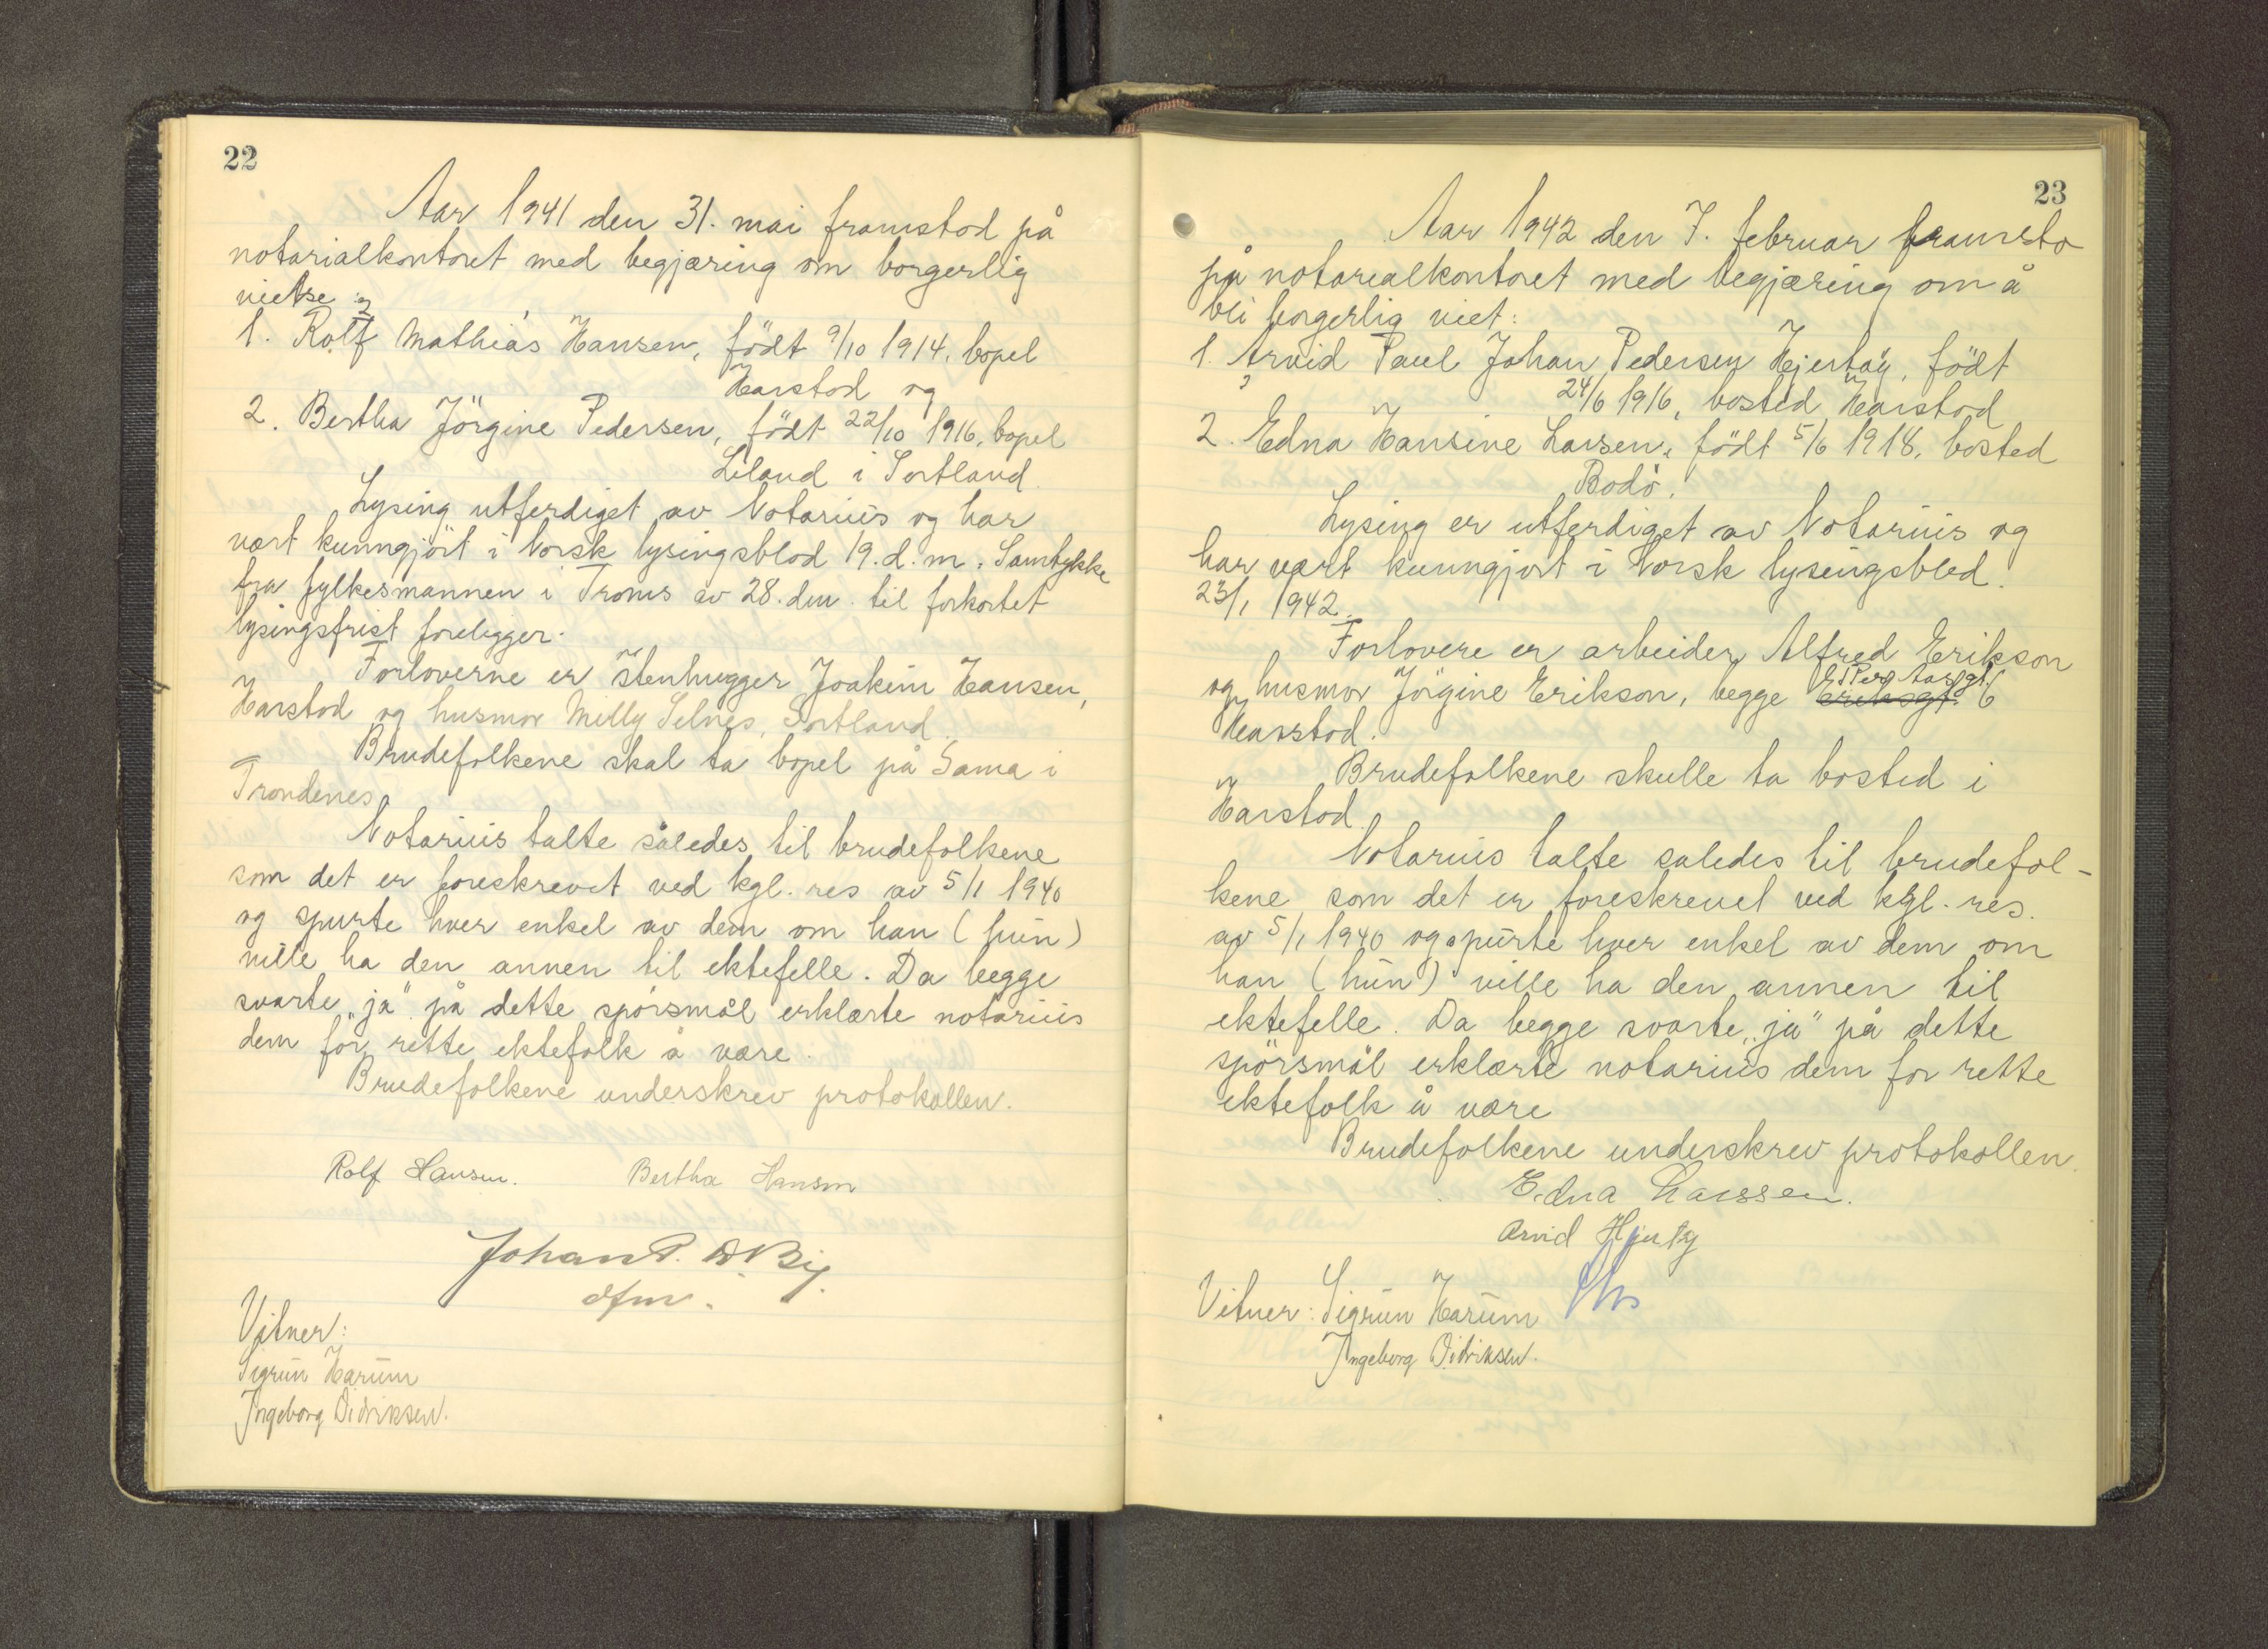 22
Aar 1941 den 31. mai framstod på
notarialkontoret med begjæring om borgerlig
vielse :
1. Rolf Mathias Hansen, födt 9/10 1914, bopel
Harstad og
2. Bertha Jörgine Pedersen, födt 22/10 1916, bopel
Liland i Sortland.
Lysing utferdiget av Notarius og har
vært kunngjört i Norsk lysingsblad 19. d. m. Samtykke
fra fylkesmannen i Troms av 28. dm. til forkortet
lysingsfrist foreligger.
Forloverne er stenhugger Joakim Hansen,
Harstad og husmor Milly Selnes, Sortland.
Brudefolkene skal ta bopel på Sama i
Trondenes
Notarius talte således til brudefolkene
som det er foreskrevet ved kgl. res av 5/1 1940
og spurte hver enkel av dem om han (hun)
ville ha den annen til ektefelle. Da begge
svarte „ja" på dette spörsmål erklærte notarius
dem for rette ektefolk å være.
Brudefolkene underskrev protokollen.
Rolf Hansen. Bertha Hansen
Johan P.
dfm.
Vitner:
Sigrun Harum
Ingeborg Didriksen.
23
Aar 1942 den 7. februar framsto
på notarialkontoret med begjæring om å
bli borgerlig viet:
1. Arvid Paul Johan Pedersen Hjertöy, födt
24/6 1916, bosted Harstad
2. Edna Hansine Larsen, födt 5/6 1918, bosted
Bodö.
Lysing er utferdiget av Notarius og
har vært kunngjort i Norsk lysingsblad
23/1 1942.
Forlovere er arbeider Alfred Erikson
og husmor Jörgine Erikson, begge St Pers Aasgt. 6
Harstad.
Brudefolkene skulle ta bosted i
Harstad.
Notarius talte saledes til brudefol-
kene som det er foreskrevet ved kgl. res.
av 5/1 1940 og spurte hver enkel av dem om
han (hun) ville ha den annen til
ektefelle. Da begge svarte „ja" på dette
spörsmål erklærte notarius dem for rette
ektefolk å være
Brudefolkene underskrev protokollen.
Edna Larssen.
Arvid Hjertøy
Vitner: Sigrun Harum
Ingeborg Didriksen.